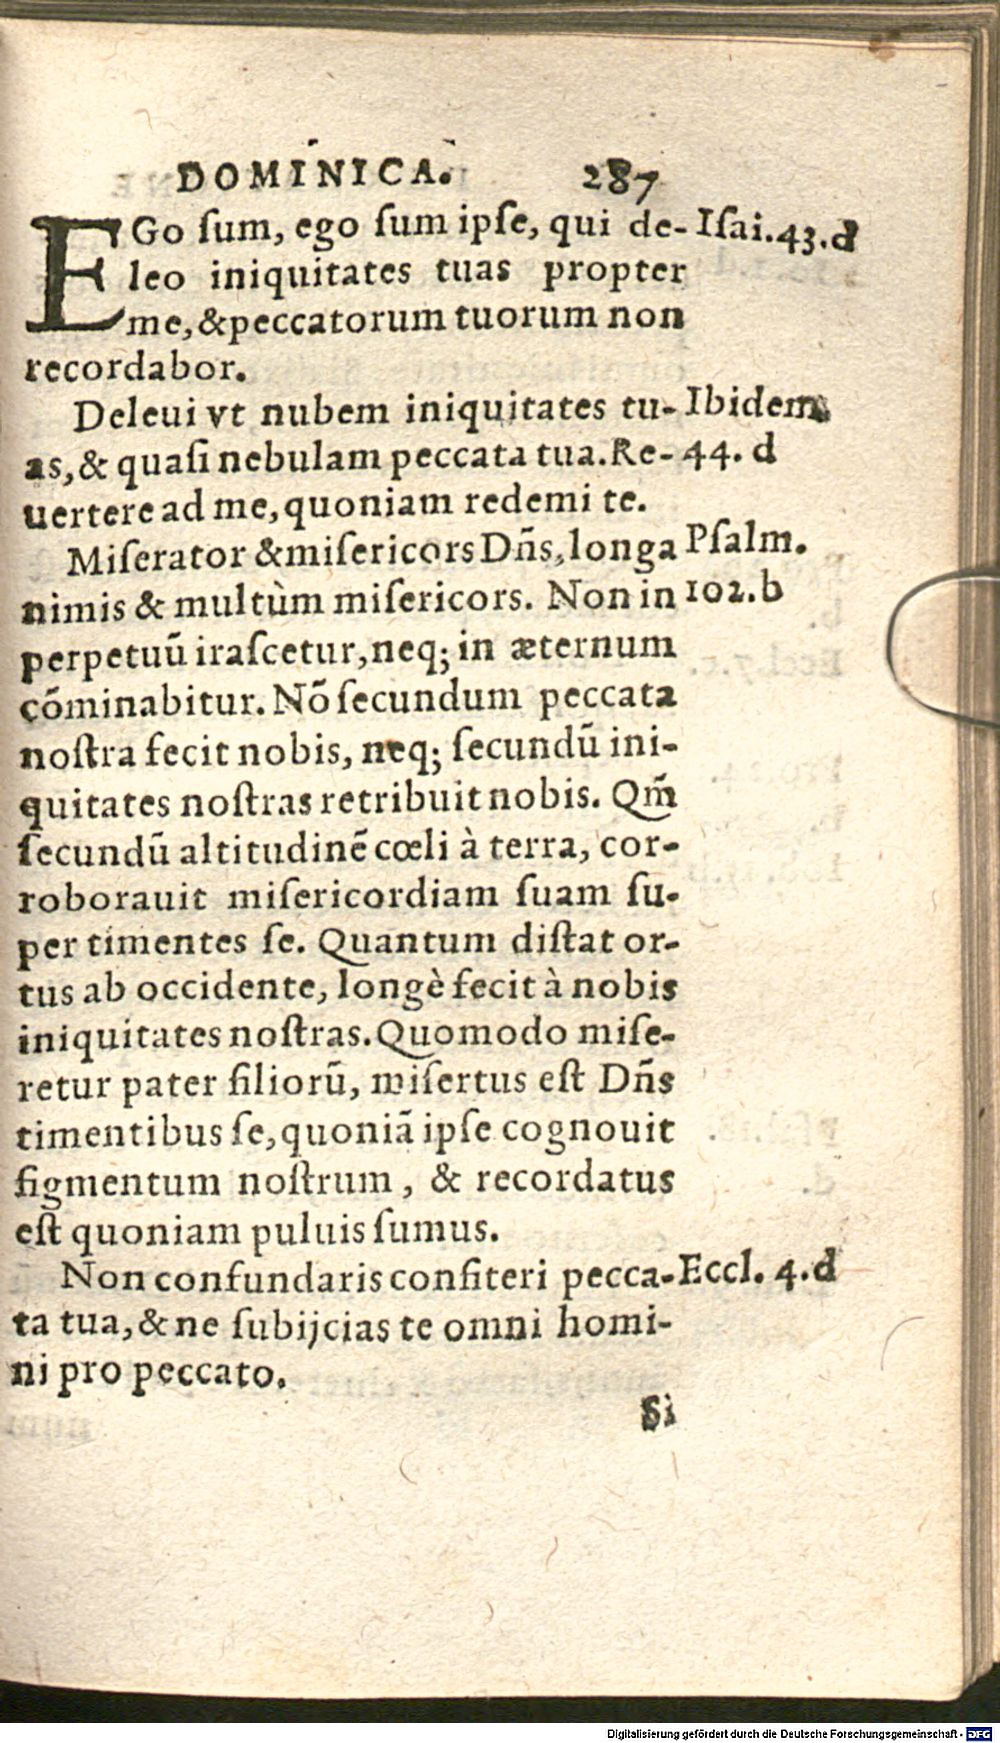 DOMINICA. 287
EGo ſum, ego ſum ipſe, qui de- Iſai. 43. d
leo iniquitates tuas propter
me, & peccatorum tuorum non
recordabor.
Deleui vt nubem iniquitates tu- Ibidem
as, & quaſi nebulam peccata tua. Re- 44. d
uertere ad me, quoniam redemi te.
Miſerator & miſericors Dñs, longa Pſalm.
nimis & multùm miſericors. Non in 102. b
perpetuũ iraſcetur, neq; in æternum
cõminabitur. Nõ ſecundum peccata
noſtra fecit nobis, neq; ſecundũ ini-
quitates noſtras retribuit nobis. Qm̃
ſecundũ altitudinẽ cœli à terra, cor-
roborauit miſericordiam ſuam ſu-
per timentes ſe. Quantum diſtat or-
tus ab occidente, longè fecit à nobis
iniquitates noſtras. Quomodo miſe-
retur pater filiorũ, miſertus eſt Dñs
timentibus ſe, quoniã ipſe cognouit
figmentum noſtrum, & recordatus
eſt quoniam puluis ſumus.
Non confundaris confiteri pecca- Eccl. 4. d
ta tua, & ne ſubijcias te omni homi-
ni pro peccato.
Si
Digitalisierung gefördert durch die Deutsche Forschungsgemeinschaft - DFG